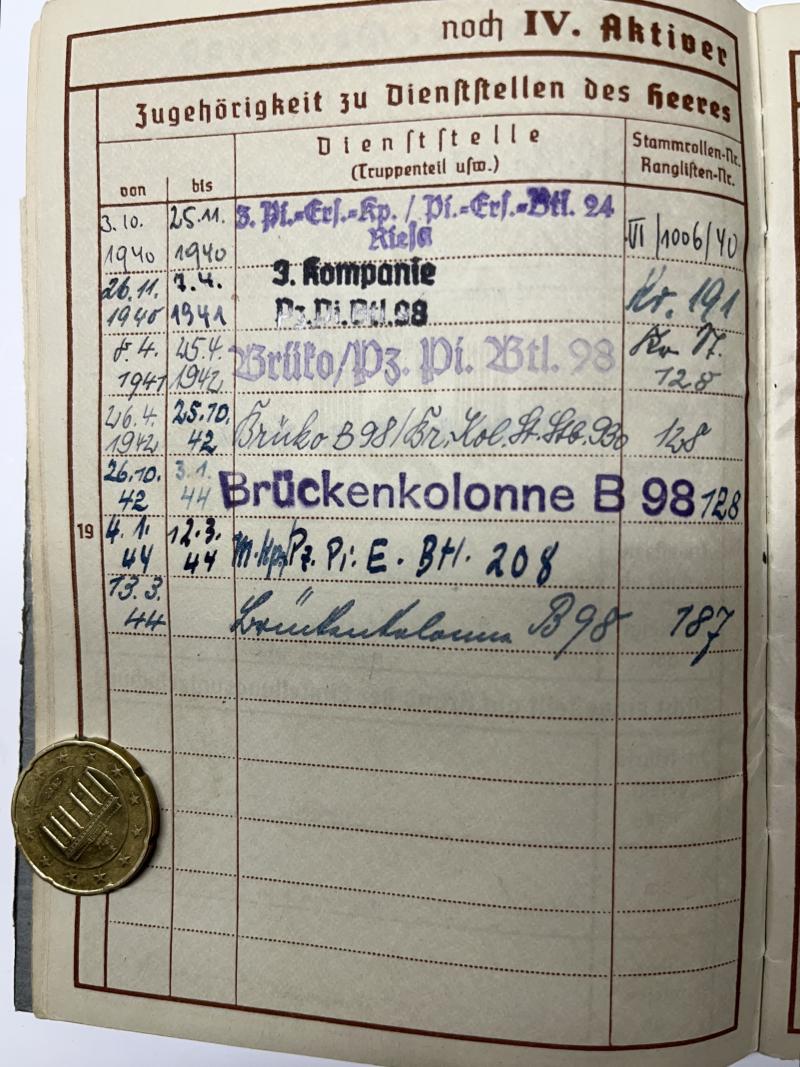 noch IV. Aktiver
Zugehörigkeit zu Dienststellen des Heeres
von bis Dienststelle (Truppenteil usw.) Stammrollen-Nr. Ranglisten-Nr.
3.10. 1940 25.11. 1940 3. Pi.-Ers.-Kp. / Pi.-Ers.-Btl. 24 Riesa VI/1006/40
26.11. 1940 7.4. 1941 3. Kompanie Pz.Pi.Btl.98 Kr. 191
8.4. 1941 25.4. 1942 Brüko/Pz. Pi. Btl. 98 128
26.4. 1942 25.10. 42 Brüko B 98/Br.Kol.St.Stb. 930 128
26.10. 42 3.1. 44 Brückenkolonne B 98 128
19 4.1. 44 12.3. 44 M.Kp/Pz. Pi. E. Btl. 208
13.3. 44 Brückenkolonne B 98 187